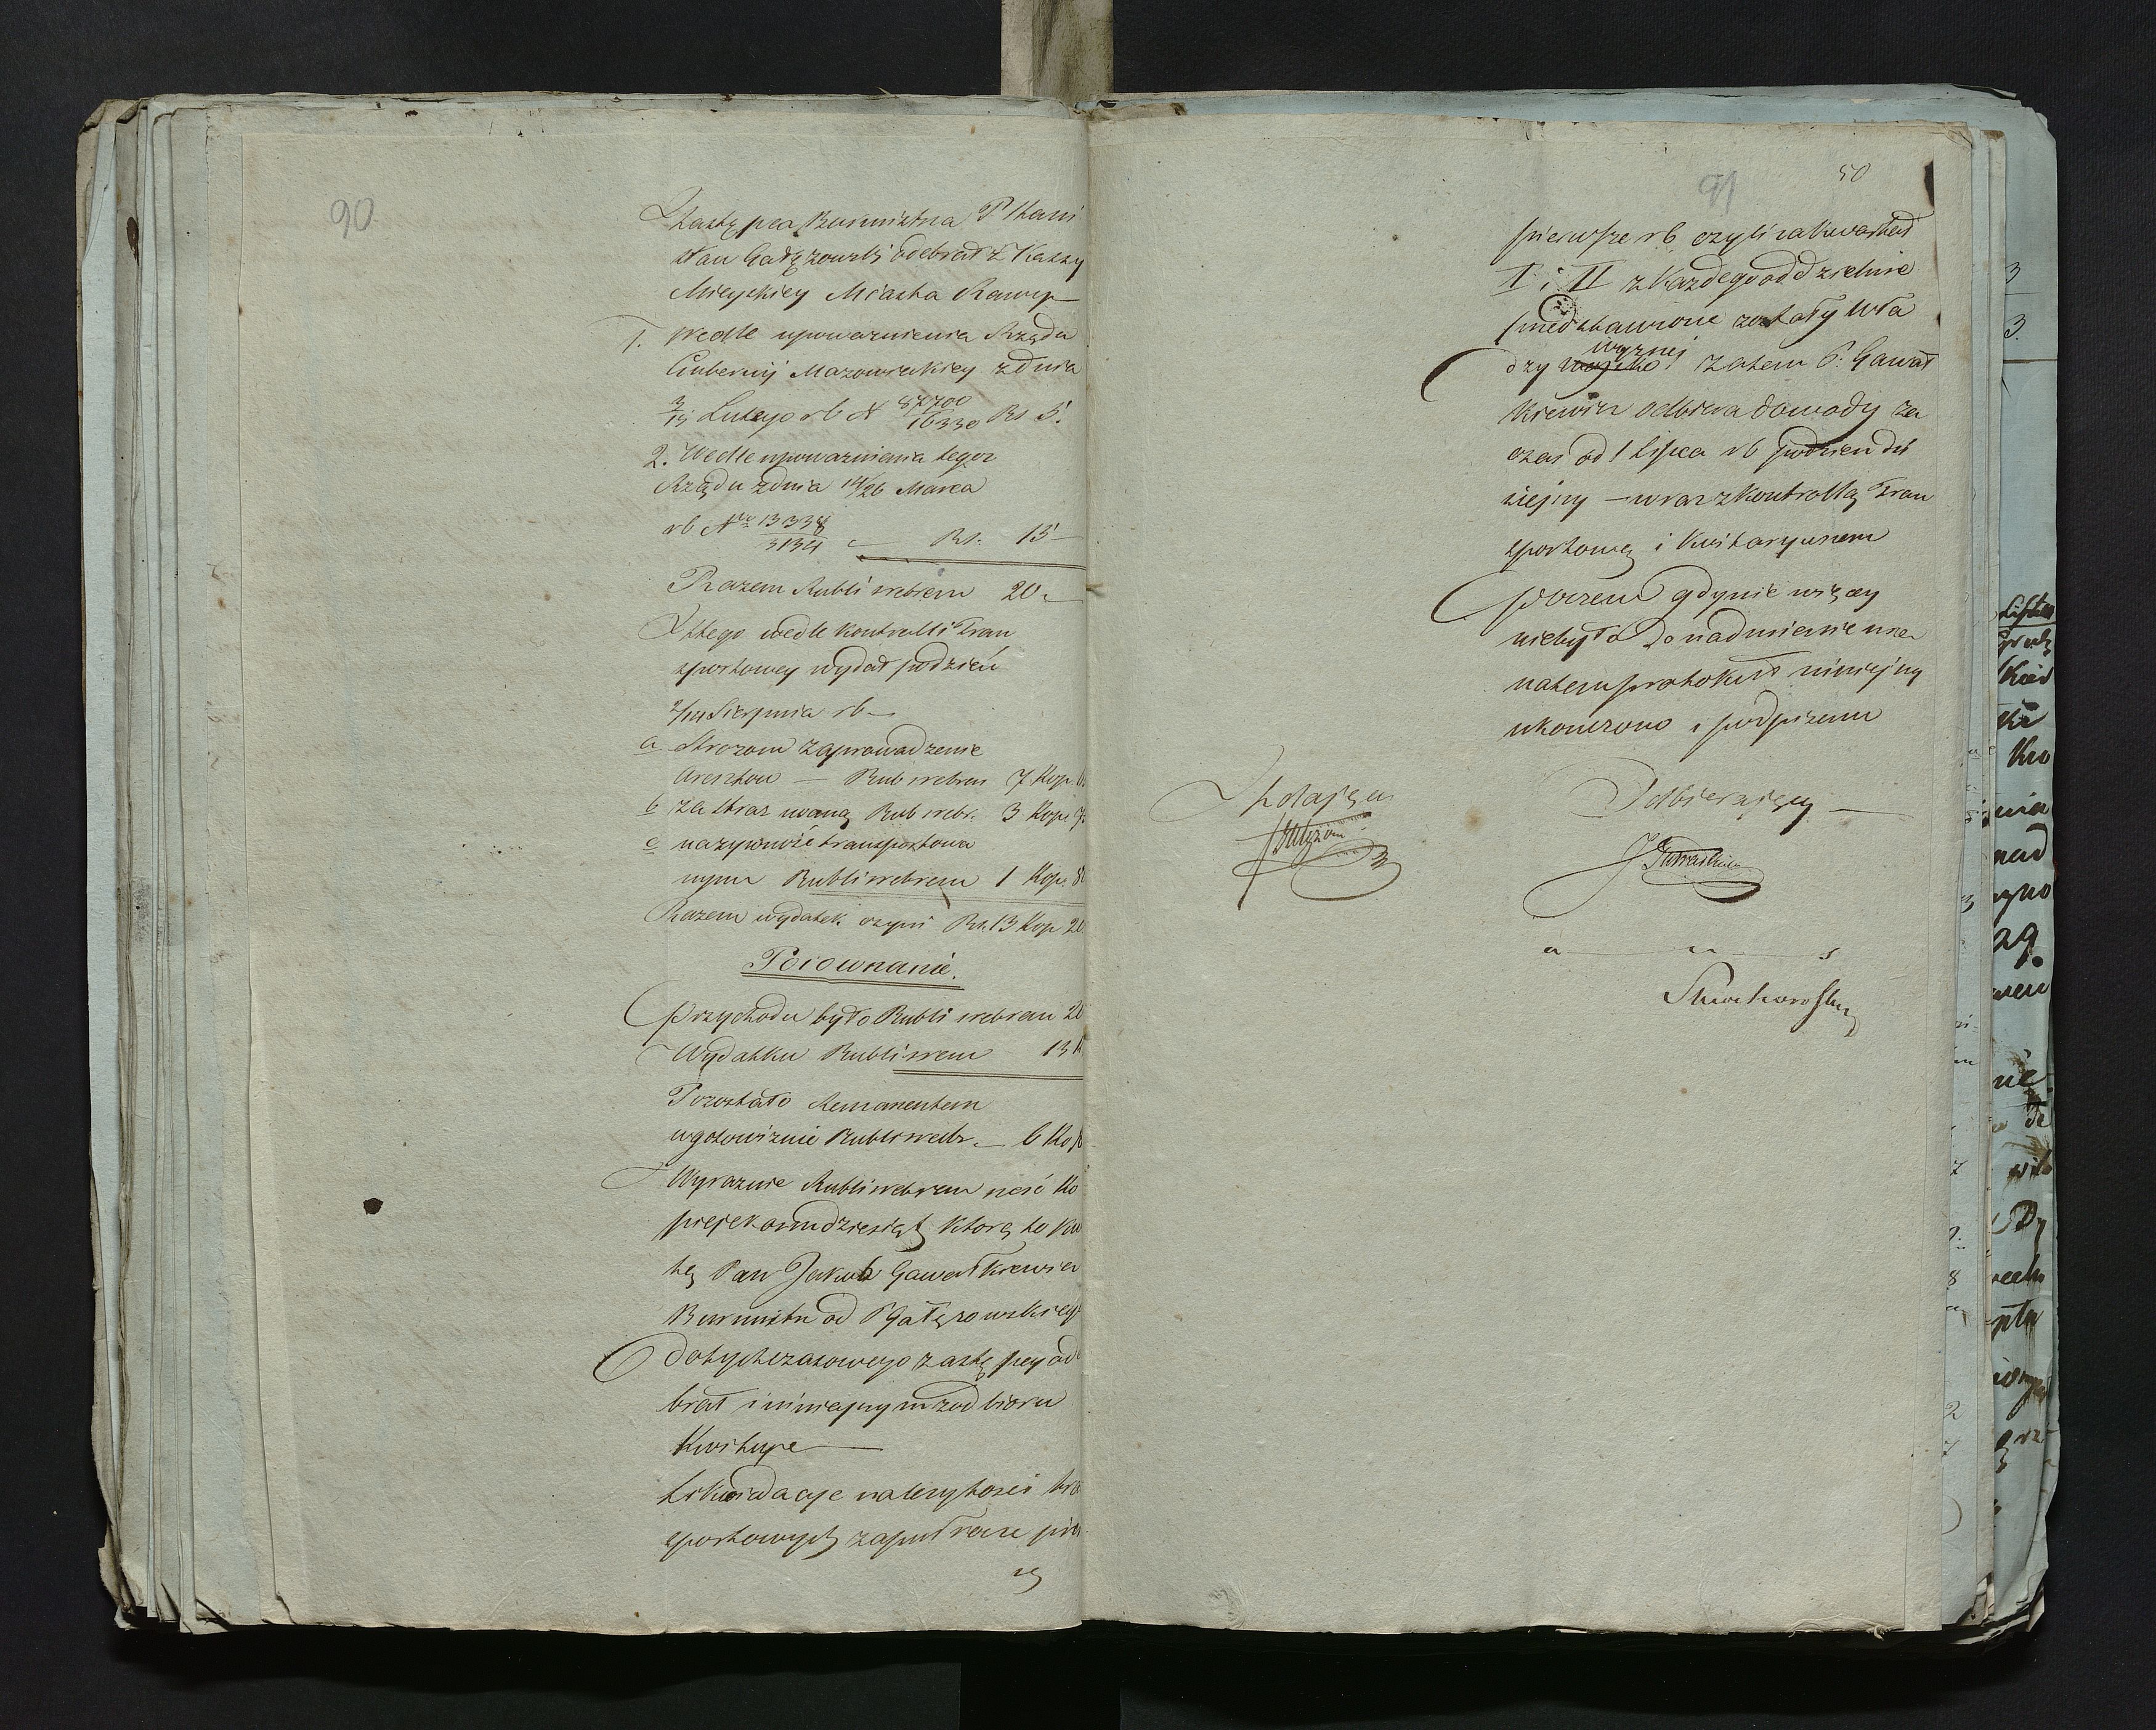 90
Zastępca Burmistrza P Stani
sław Gałęzowski odebrał z Kassy
Mieyskiey Miasta Rawy
1. Wedle upoważnienia Rządu
Gubernij Mazowieckiey z dnia
3/15 Lutego rb N 82700/16330 Rs 5.
2. Wedle upoważnienia tegoż
Rządu z dnia 14/26 Marca
rb Nro 13338/3134 Rs. 15
Razem Rubli srebrem 20.
Z tego wedle Kontrolli Tran
sportowey wydał podzień
2/14 Sierpnia rb
a. Stróżom za prowadzenie
Aresztow — Rub srebrem 7 Kop.
b za straż nocną Rub srebr. 3 Kop.
c na żywność transportowa
nym Rubli srebrem 1 Kop. 8
Razem wydatek czyni Rs. 13 Kop 20
Porównanie.
Przychodu było Rubli srebrem 20
Wydatku Rubli srem 13 K
Pozostało Remanentem
w gotowiźnie Rubli srebr. — 6 Kop
Wyraźnie Rubli srebrem sześć Ko
piejek osmdziesiąt, którą to kwo
tę Pan Jakub Gawałkiewicz
Burmistrz od P Gałęzowskiego
dotychczasowego zastępcy ode
brał i niniejszym z odbioru
Kwituje
Likwidacyje należytości tran
sportowych za półrocze pier
sz
91
50
pierwsze rb czyli za kwartał
I i II z każdego oddzielnie
przedstawione zostały Wła
dzy wyżniej zatem P. Gawał
kiewicz odbiera dowody za
czas od 1 Lipca rb podzień dzi
siejszy — wraz z Kontrollą Tran
sportową i Kwitaryuszem
Poczem gdy nie więcey
niebyło do nadmienienia
na tem protokuł niniejszy
ukończono i podpisano
Zdający
Odbierający
a — u — s